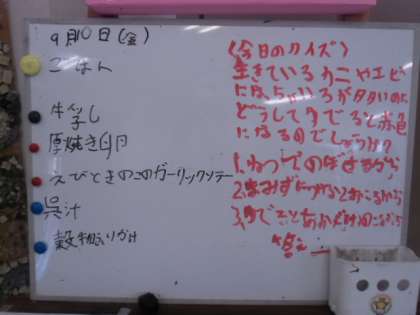 9月10日(金)
ごはん
牛乳
厚焼き卵
えびときのこのガーリックソテー
呉汁
穀物ふりかけ
〈今日のクイズ〉
生きているカニやエビ
には
どうしてゆでると赤色
になるのでしょうか?
1.ねつでのぼせるから
2.
3.ゆでると
答え: